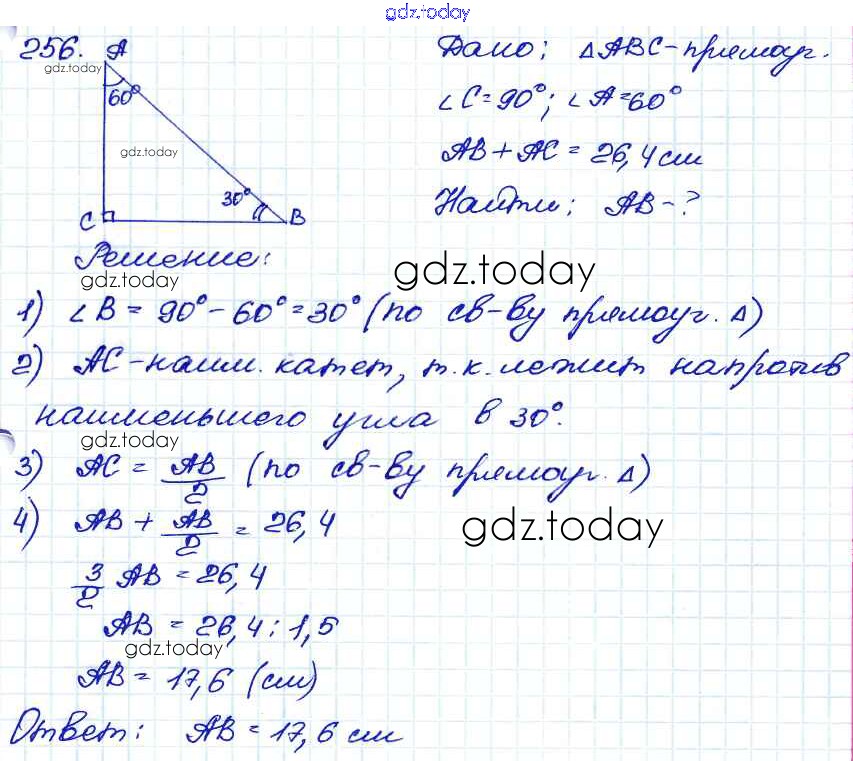 gdz.today
256.
A
gdz.today
60°
gdz.today
30°
C
B
Дано: △ABC-прямоуг.
∠C=90°; ∠A=60°
AB+AC=26,4см
Найти: AB-?
Решение:
gdz.today
gdz.today
1) ∠B=90°-60°=30°(по св-ву прямоуг.△)
2) AC-наим. катет, т.к. лежит напротив
наименьшего угла в 30°.
gdz.today
3) AC = AB/2 (по св-ву прямоуг.△)
4) AB + AB/2 = 26,4
gdz.today
3/2 AB = 26,4
AB = 26,4:1,5
gdz.today
AB = 17,6 (см)
Ответ: AB = 17,6 см